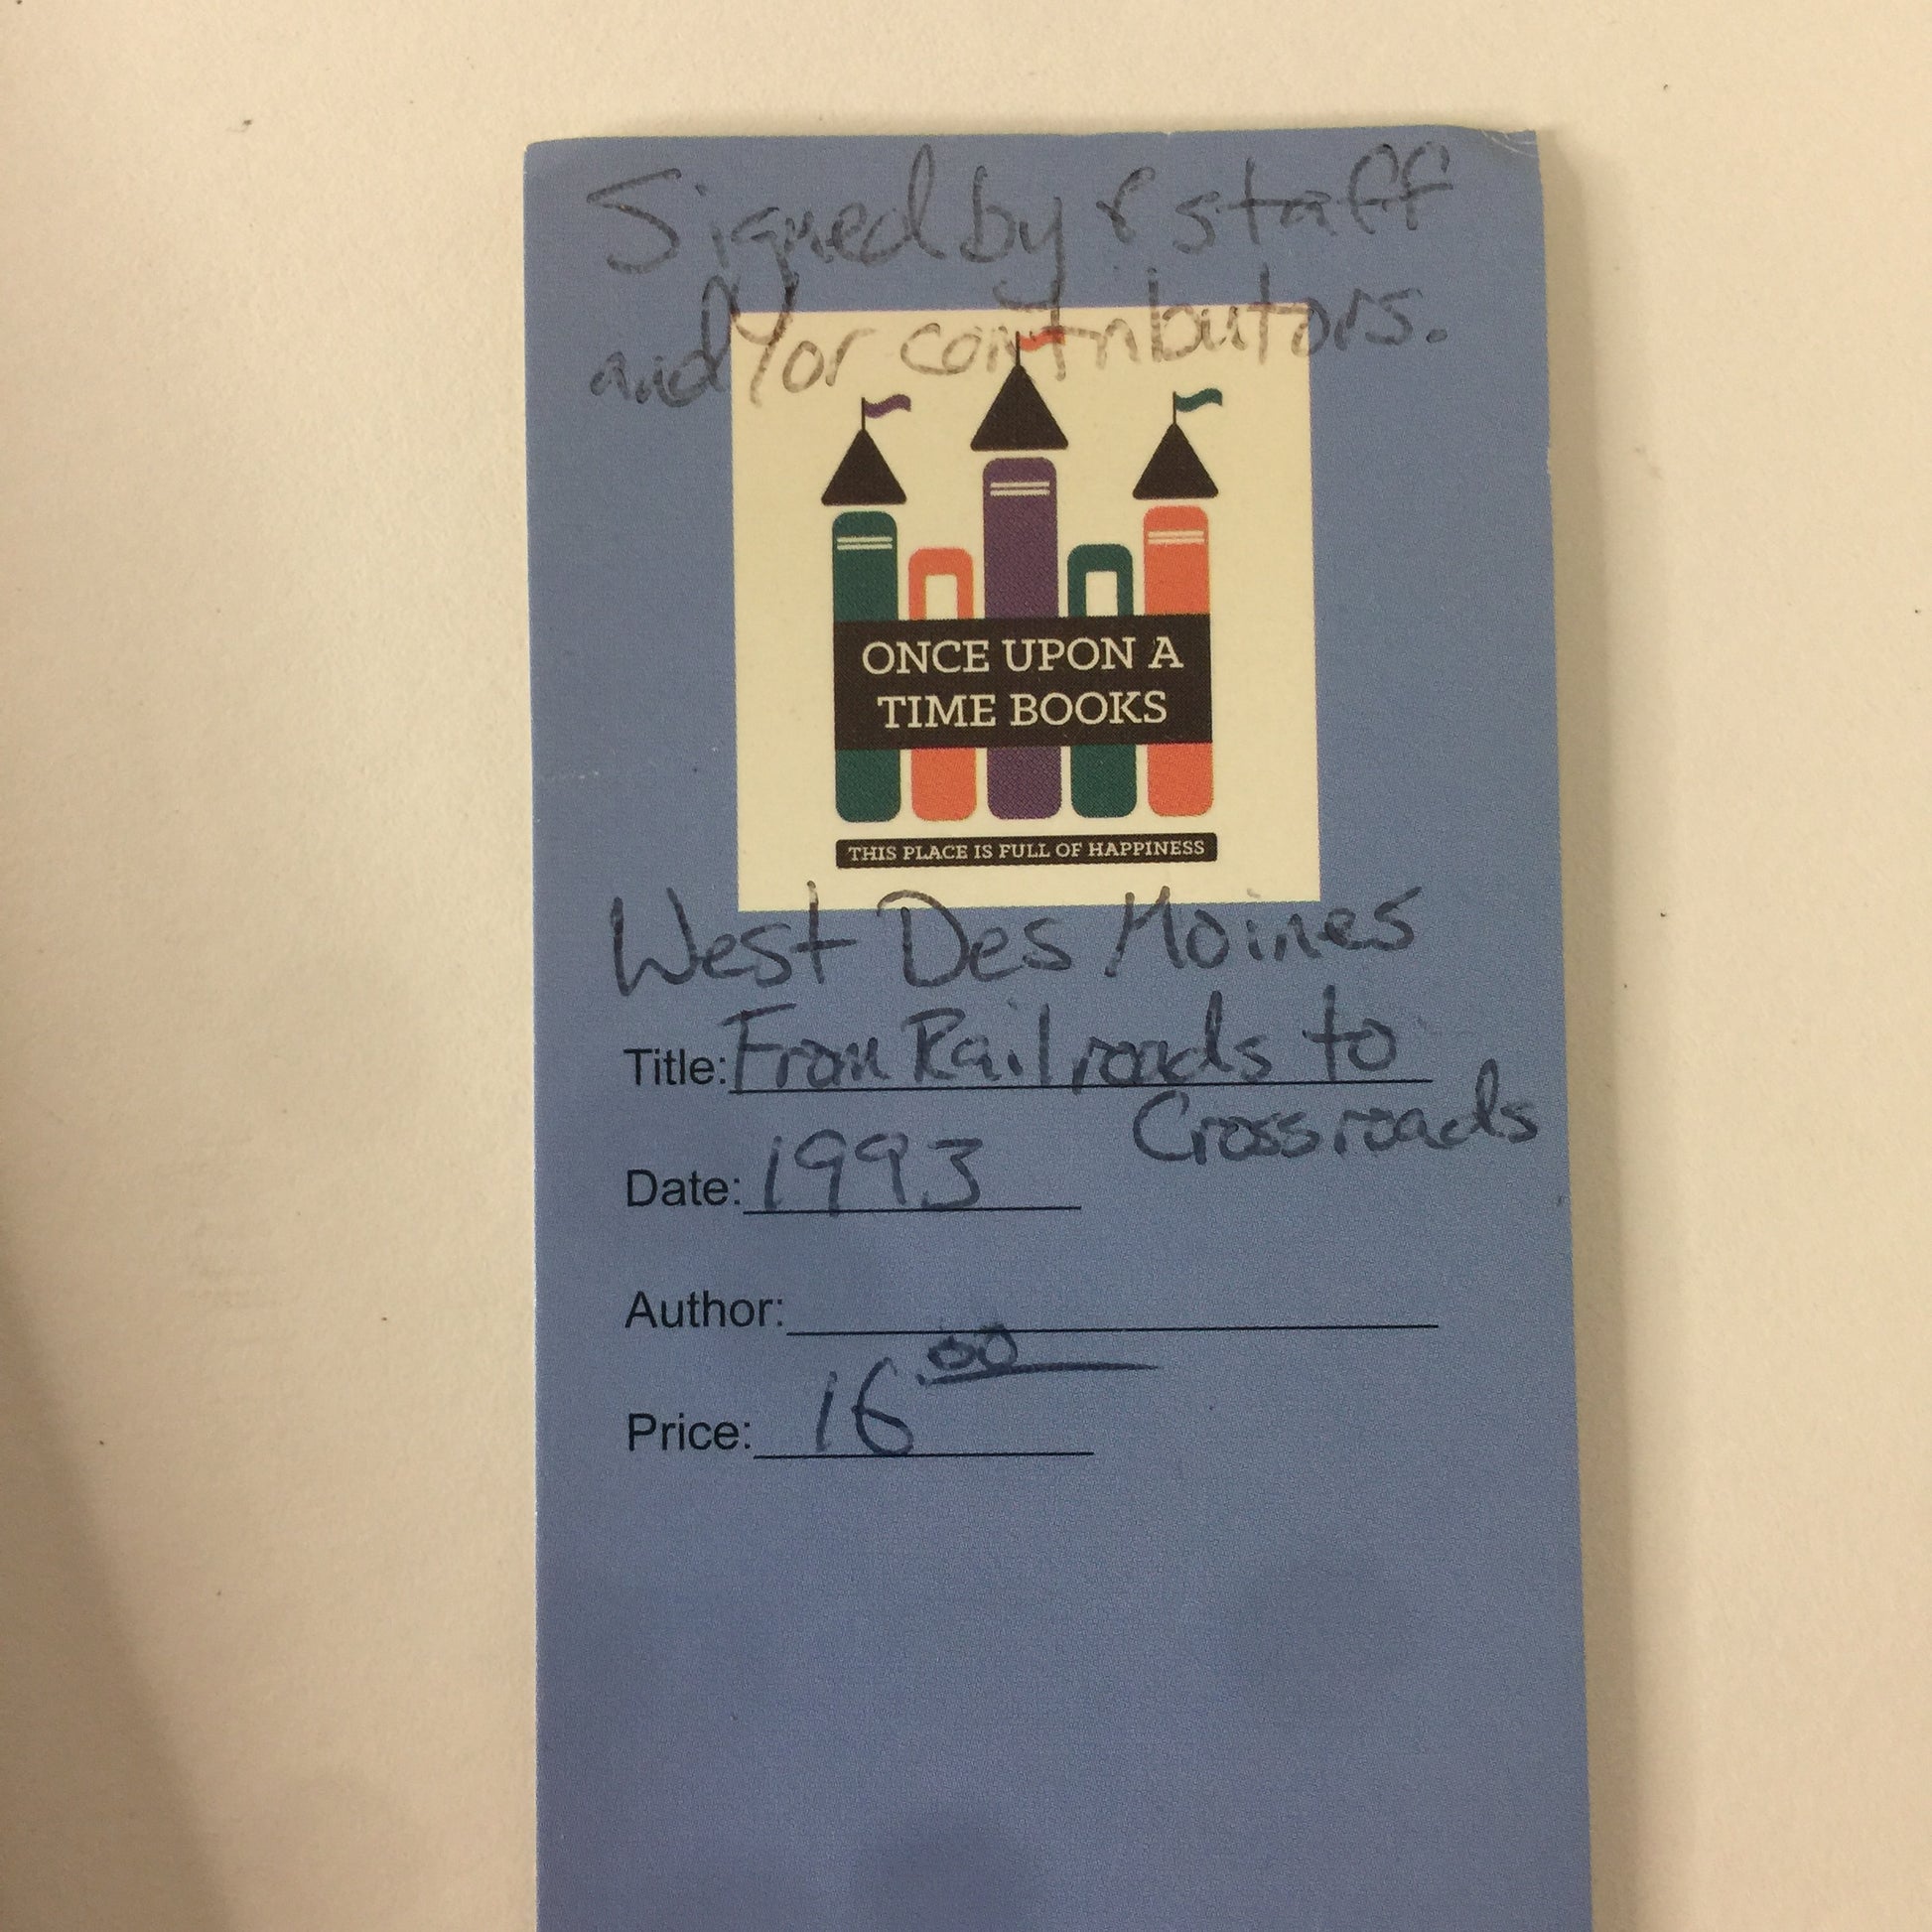 Signed by 8 staff
and/or contributors.
ONCE UPON A
TIME BOOKS
THIS PLACE IS FULL OF HAPPINESS
West Des Moines
Title: From Railroads to
Crossroads
Date: 1993
Author:
Price: 16.00